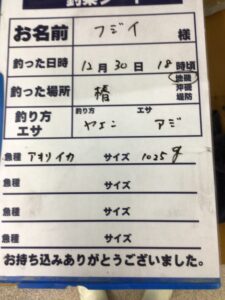 釣果シート
お名前 フジイ 様
釣った日時 12月30日 18時頃
釣った場所 椿 地磯 沖磯 堤防
釣り方 エサ 釣り方 ヤエン エサ アジ
魚種 アオリイカ サイズ 1025g
魚種 サイズ
魚種 サイズ
魚種 サイズ
お持ち込みありがとうございました。